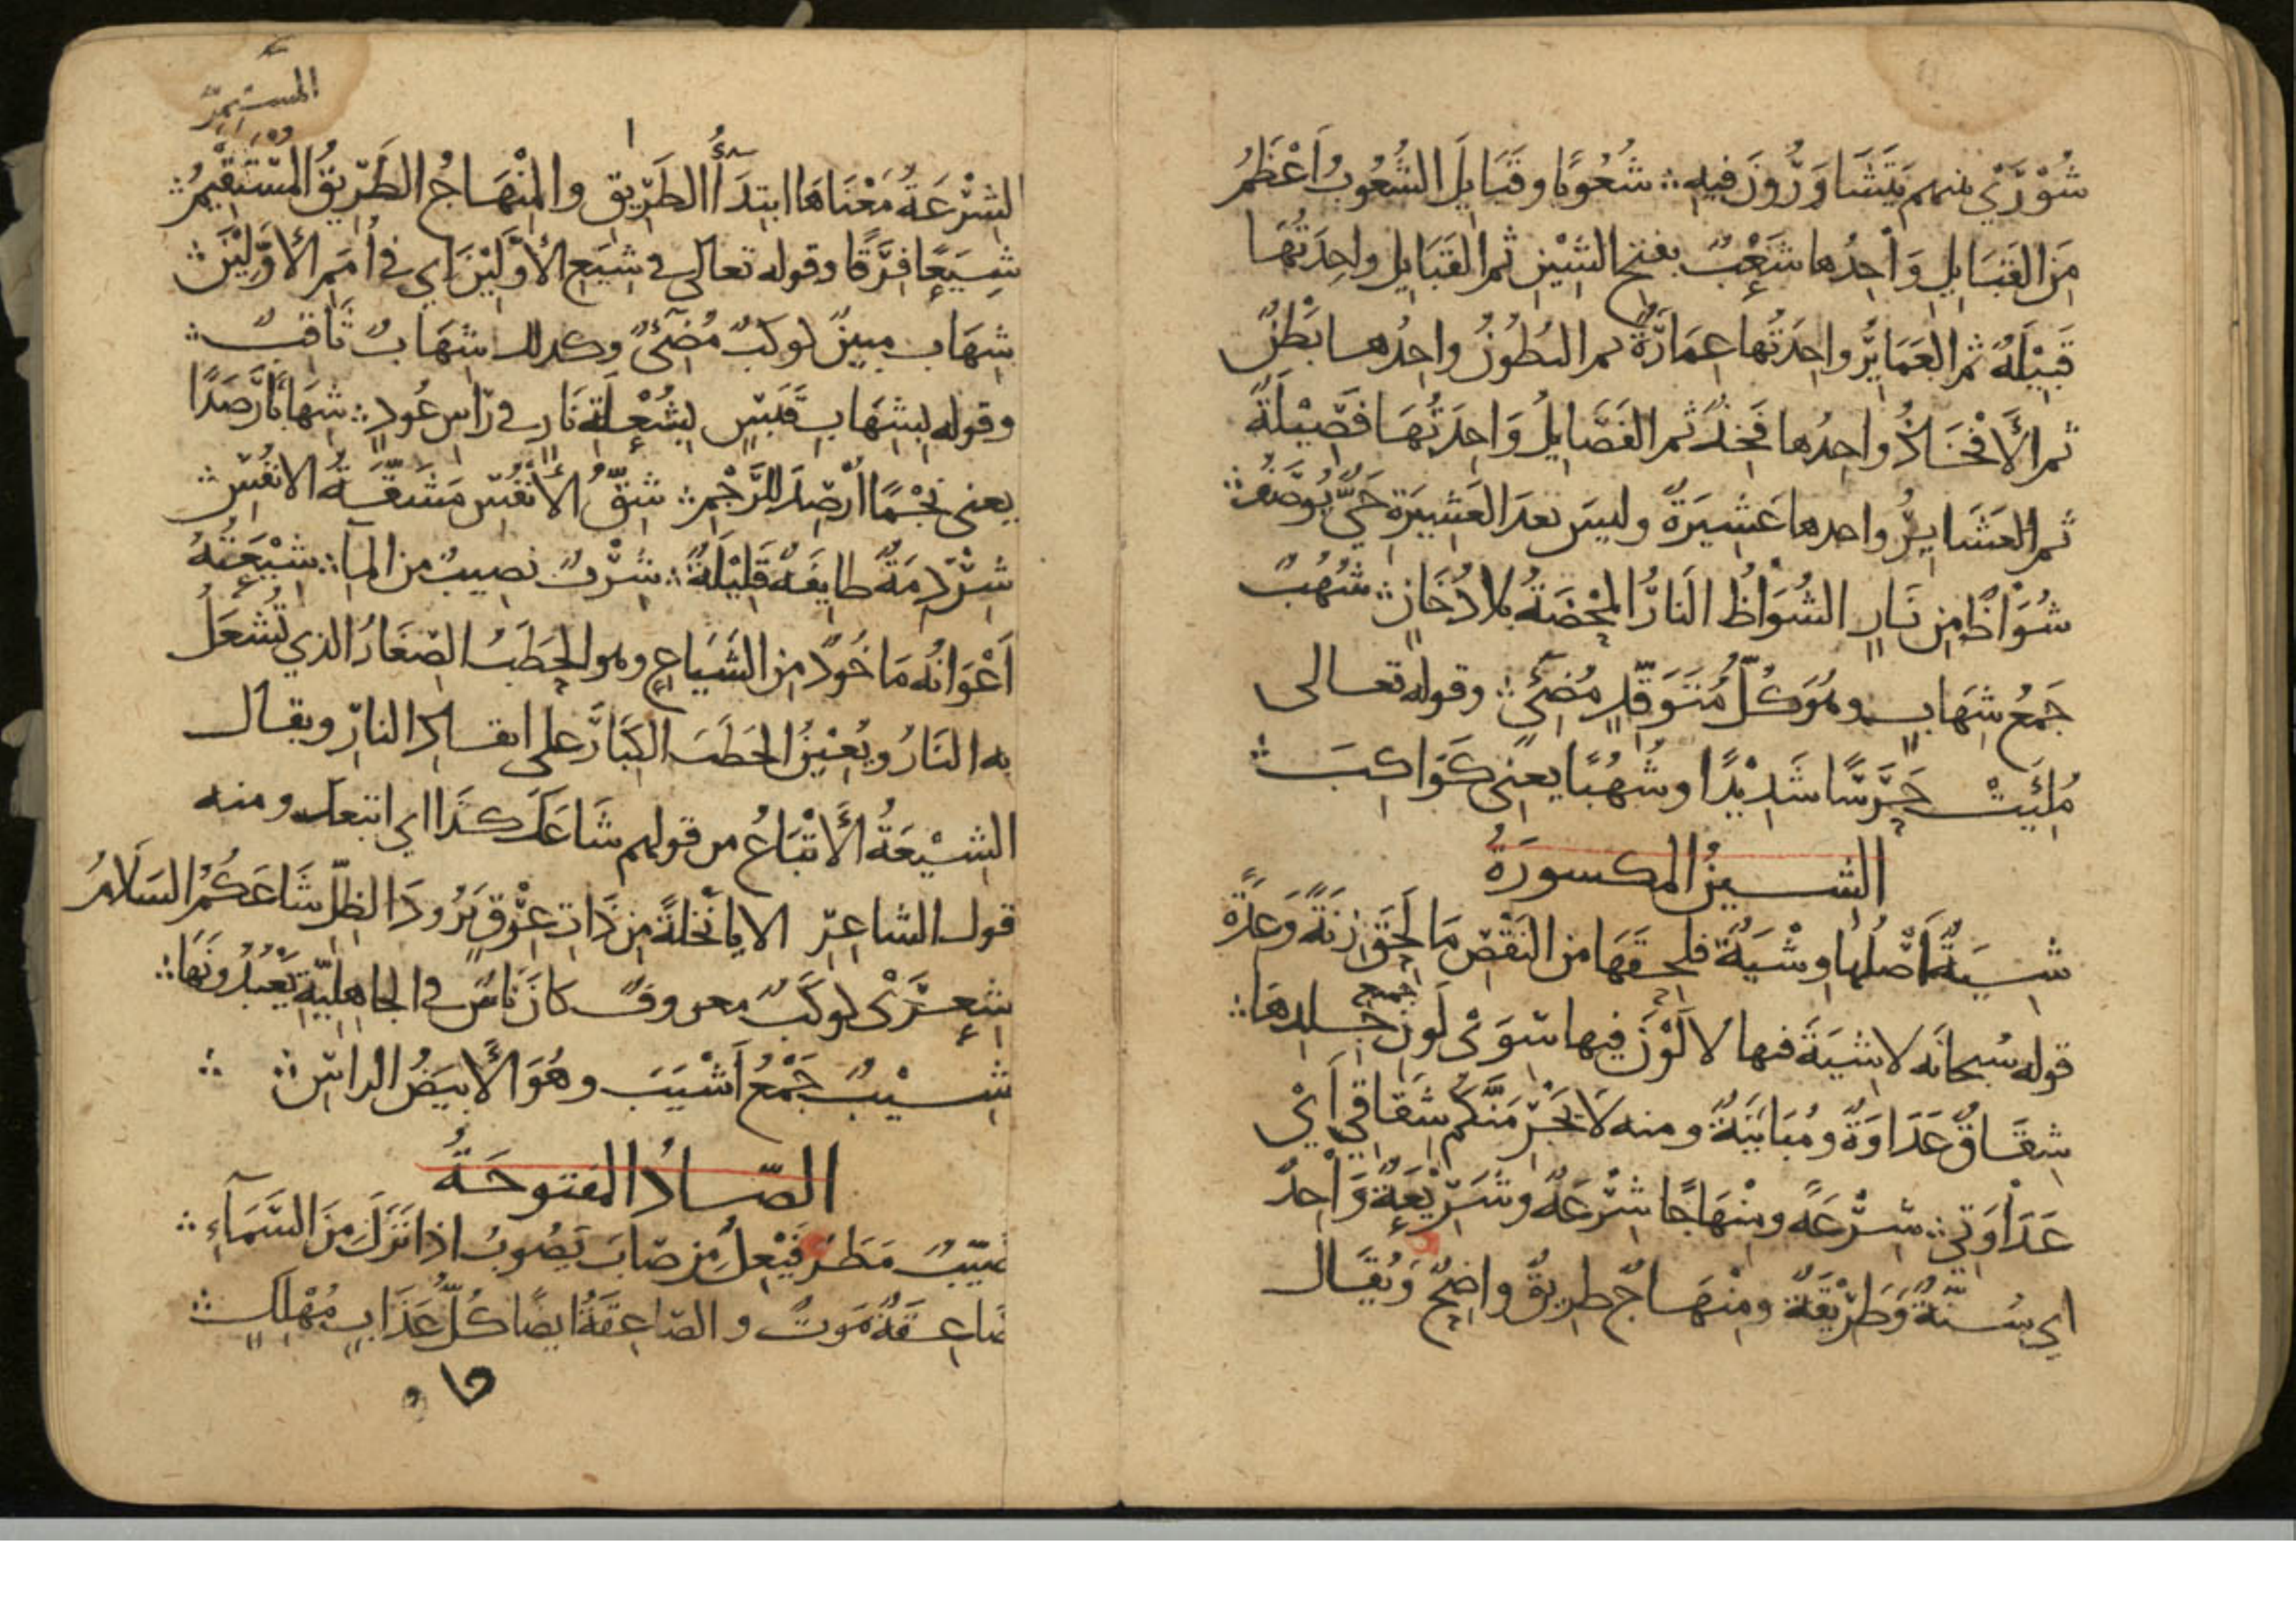 شُوْرَىْ بينهم يَتَشَاوَرُونَ فيه ؞ شُعُوبًا وقَبَايِلَ الشُّعُوبُ اَعْظَمُ
مِنَ القَبَايِلِ وَاحِدُها شَعْبٌ بفتح الشَيْنِ ثم القَبَايِل واحِدَتُهَا
قَبِيْلَةٌ ثم العَمَايِرُ واحِدَتُها عِمَارَةٌ ثم البُطُونُ واحِدُها بَطْنٌ
ثم الأَفْخَاذُ واحِدُها فَخِذٌ ثم الفَصَايِلُ وَاحِدَتُهَا فَصِيْلَةٌ
ثم العَشَايِرُ واحدها عَشِيرَةٌ وليسَ بعدَ العَشِيرَةِ حَىٌّ يُوصَفُ ؞
شُوَاظٌ مِن نَارٍ الشُوَاظُ النَارُ المحْضَةُ بلا دُخَانٍ ؞ شُهُبٌ
جَمْعُ شِهَابٍ وهُوَ كُلّ مُتَوَقِّدٍ مُضِئٍ ؞ وقوله تعالى
مُلِئَتْ حَرَسًا شَدِيْدًا وشُهُبًا يعنِى كَوَاكِبَ ؞
الشينُ المكسورَةُ
شِيَةٌ اَصْلُها وِشْيَةٌ فلحِقَهَا من النَقْصِ مَا لَحِقَ زِنَةً وَعِدَةً
قوله سُبحانَه لاشِيَةَ فيها لا لَوْنَ فيها سِوَىْ لَونِ جميع جِلدِهَا ؞
شِقَاقٌ عَدَاوَةٌ ومُبَايَنَةٌ ومنه لَا يَجْرِمَنَّكُم شِقَاقِي اَىْ
عَدَاوَتِي ؞ شِرْعَةً ومِنْهَاجًا شِرْعَةٌ وشَرِيْعَةٌ وَاحِدٌ
اي سُنّةٌ وَطَرِيْقَةٌ ومِنْهَاجٌ طريقٌ واضِحٌ وَيُقَال
المستمِرّ
الشِرْعَةُ مَعْنَاهَا ابتِدَآءُ الطَرِيقِ والمِنْهَاجُ الطَرِيقُ المُسْتَقِيْمُ ؞
شِيَعًا فِرَقًا وقوله تعالى في شِيَعِ الأَوَّلِيْنَ اي في اُمَمِ الأَوَّلِيْنَ ؞
شِهَاب مبينٌ كوكَبٌ مُضِئٌ وكذلك شِهَابٌ ثَاقبٌ ؞
وقوله بِشِهَابٍ قَبَسٍ بِشُعْلَةِ نَارٍ في رَاسِ عُودٍ ؞ شِهَابًا رَصَدًا
يعنى نَجْمًا اُرْصِدَ للرَّجْمِ ؞ شِقُّ الأَنْفُسِ مَشَقَّةُ الانفُسِ ؞
شِرْذِمَةٌ طايِفَةٌ قَلِيْلَةٌ ؞ شِرْبٌ نصِيبٌ من المآ ؞ شِيْعَتُهُ
اَعْوَانُه مَاخُوذٌ مِن الشَيَاعِ وهو الحطَبُ الصِغَارُ الذي تُشْعَلُ
به النَارُ ويُعِيْنُ الحَطَبَ الكِبَارَ على ايقادِ النارِ ويقال
الشِيْعَةُ الأَتْبَاعُ من قولهم شَاعَكَ كَذَا اي اتبعك ومنه
قول الشاعِرِ الا يا نَخْلَةً مِن ذَاتِ عِرْقٍ بَرُودَ الظِلّ شَاعَكُمُ السَلَامُ
شِعْرَىْ كوكَبٌ معروفٌ كانَ نَاسٌ في الجاهِلِيّةِ يَعْبُدُونَهَا ؞
شِيْبٌ جَمْعُ اَشْيَبَ وهُوَ الأَبيَضُ الراسِ ؞
الصّادُ المفتوحَةُ
صَيّبٌ مَطَرٌ فَيْعِلٌ مِن صَابَ يَصُوبُ اذا نَزَلَ مِنَ السَّمَآءِ ؞
صَاعِقَةٌ مَوتٌ والصَاعِقَةُ ايضًا كُلُّ عَذَابٍ مُهْلِكٍ ؞